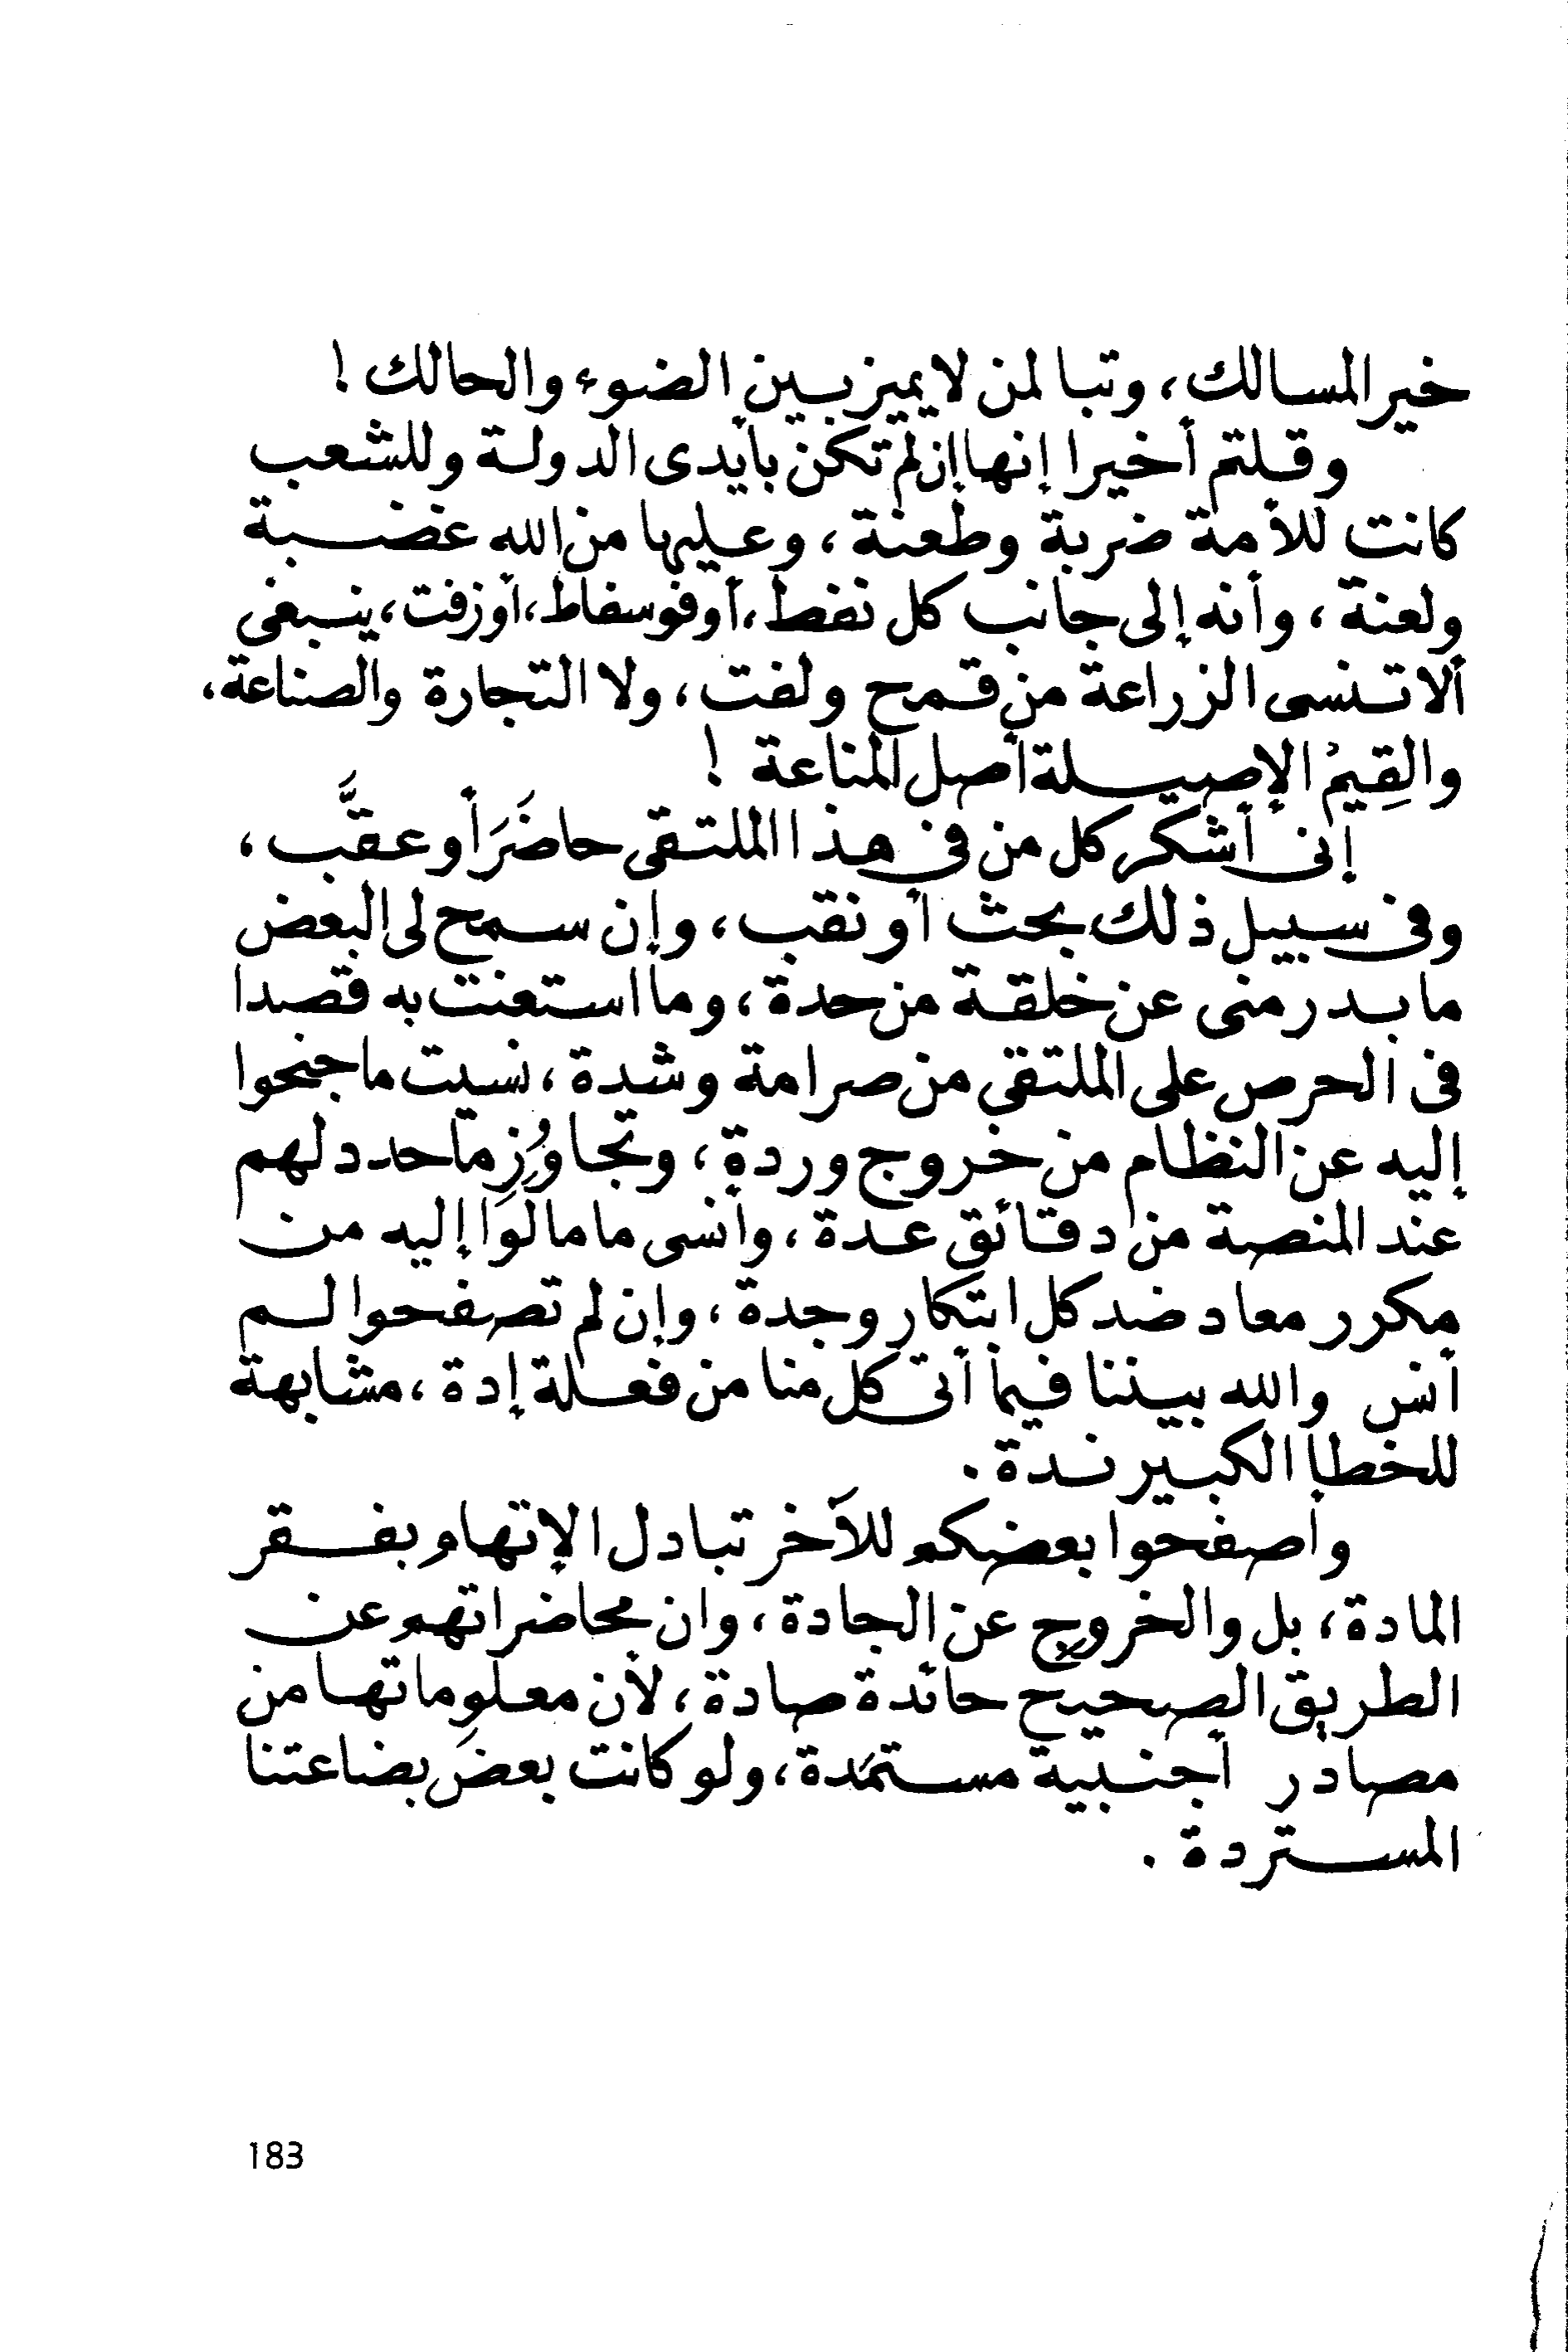 خير المسالك، وتبا لمن لا يميز بين الضوء والحالك !
وقلتم أخيرا إنها إن لم تكن بأيدى الدولة وللشعب
كانت للأمة ضربة وطعنة، وعليها من الله غضبة
ولعنة، وأنه إلى جانب كل نفط، أو فوسفاط، أو زفت، ينبغى
ألا تنسى الزراعة من قمح ولفت، ولا التجارة والصناعة،
والقِيمُ الإصيلة أصل المناعة !
إنى أشكر كل من فى هذا الملتقى حاضَرَ أو عقَّب،
وفى سبيل ذلك بحث أو نقب، وإن سمح لى البعض
ما بدر منى عن خلقة من حدة، وما استعنت به قصدا
فى الحرص على الملتقى من صرامة وشدة، نسيت ما جنحوا
إليه عن النظام من خروج وردة، وتجاوُزِ ما حدد لهم
عند المنصة من دقائق عدة، وأنسى ما مالَوا إليه من
مكرر معاد ضد كل ابتكار وجدة، وإن لم تصفحوا لم
أنس والله بيننا فيما أتى كل منا من فعلة إدة، مشابهة
للخطإ الكبير ندة .
وأصفحوا بعضكم للآخر تبادل الإتهام بفقر
المادة، بل والخروج عن الجادة، وان محاضراتهم عن
الطريق الصحيح حائدة صادة، لأن معلوماتها من
مصادر أجنبية مستمَدة، ولو كانت بعضَ بضاعتنا
المستردة .
183